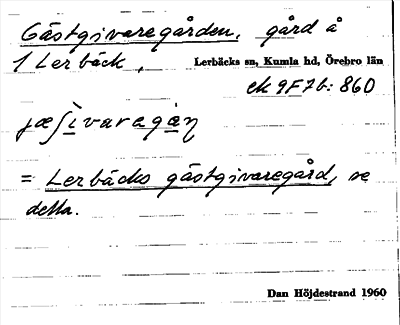 Gästgivaregården, gård å
1 Lerbäck, Lerbäcks sn, Kumla hd, Örebro län
ek 9F7b: 860
= Lerbäcks gästgivaregård, se
detta.
Dan Höjdestrand 1960